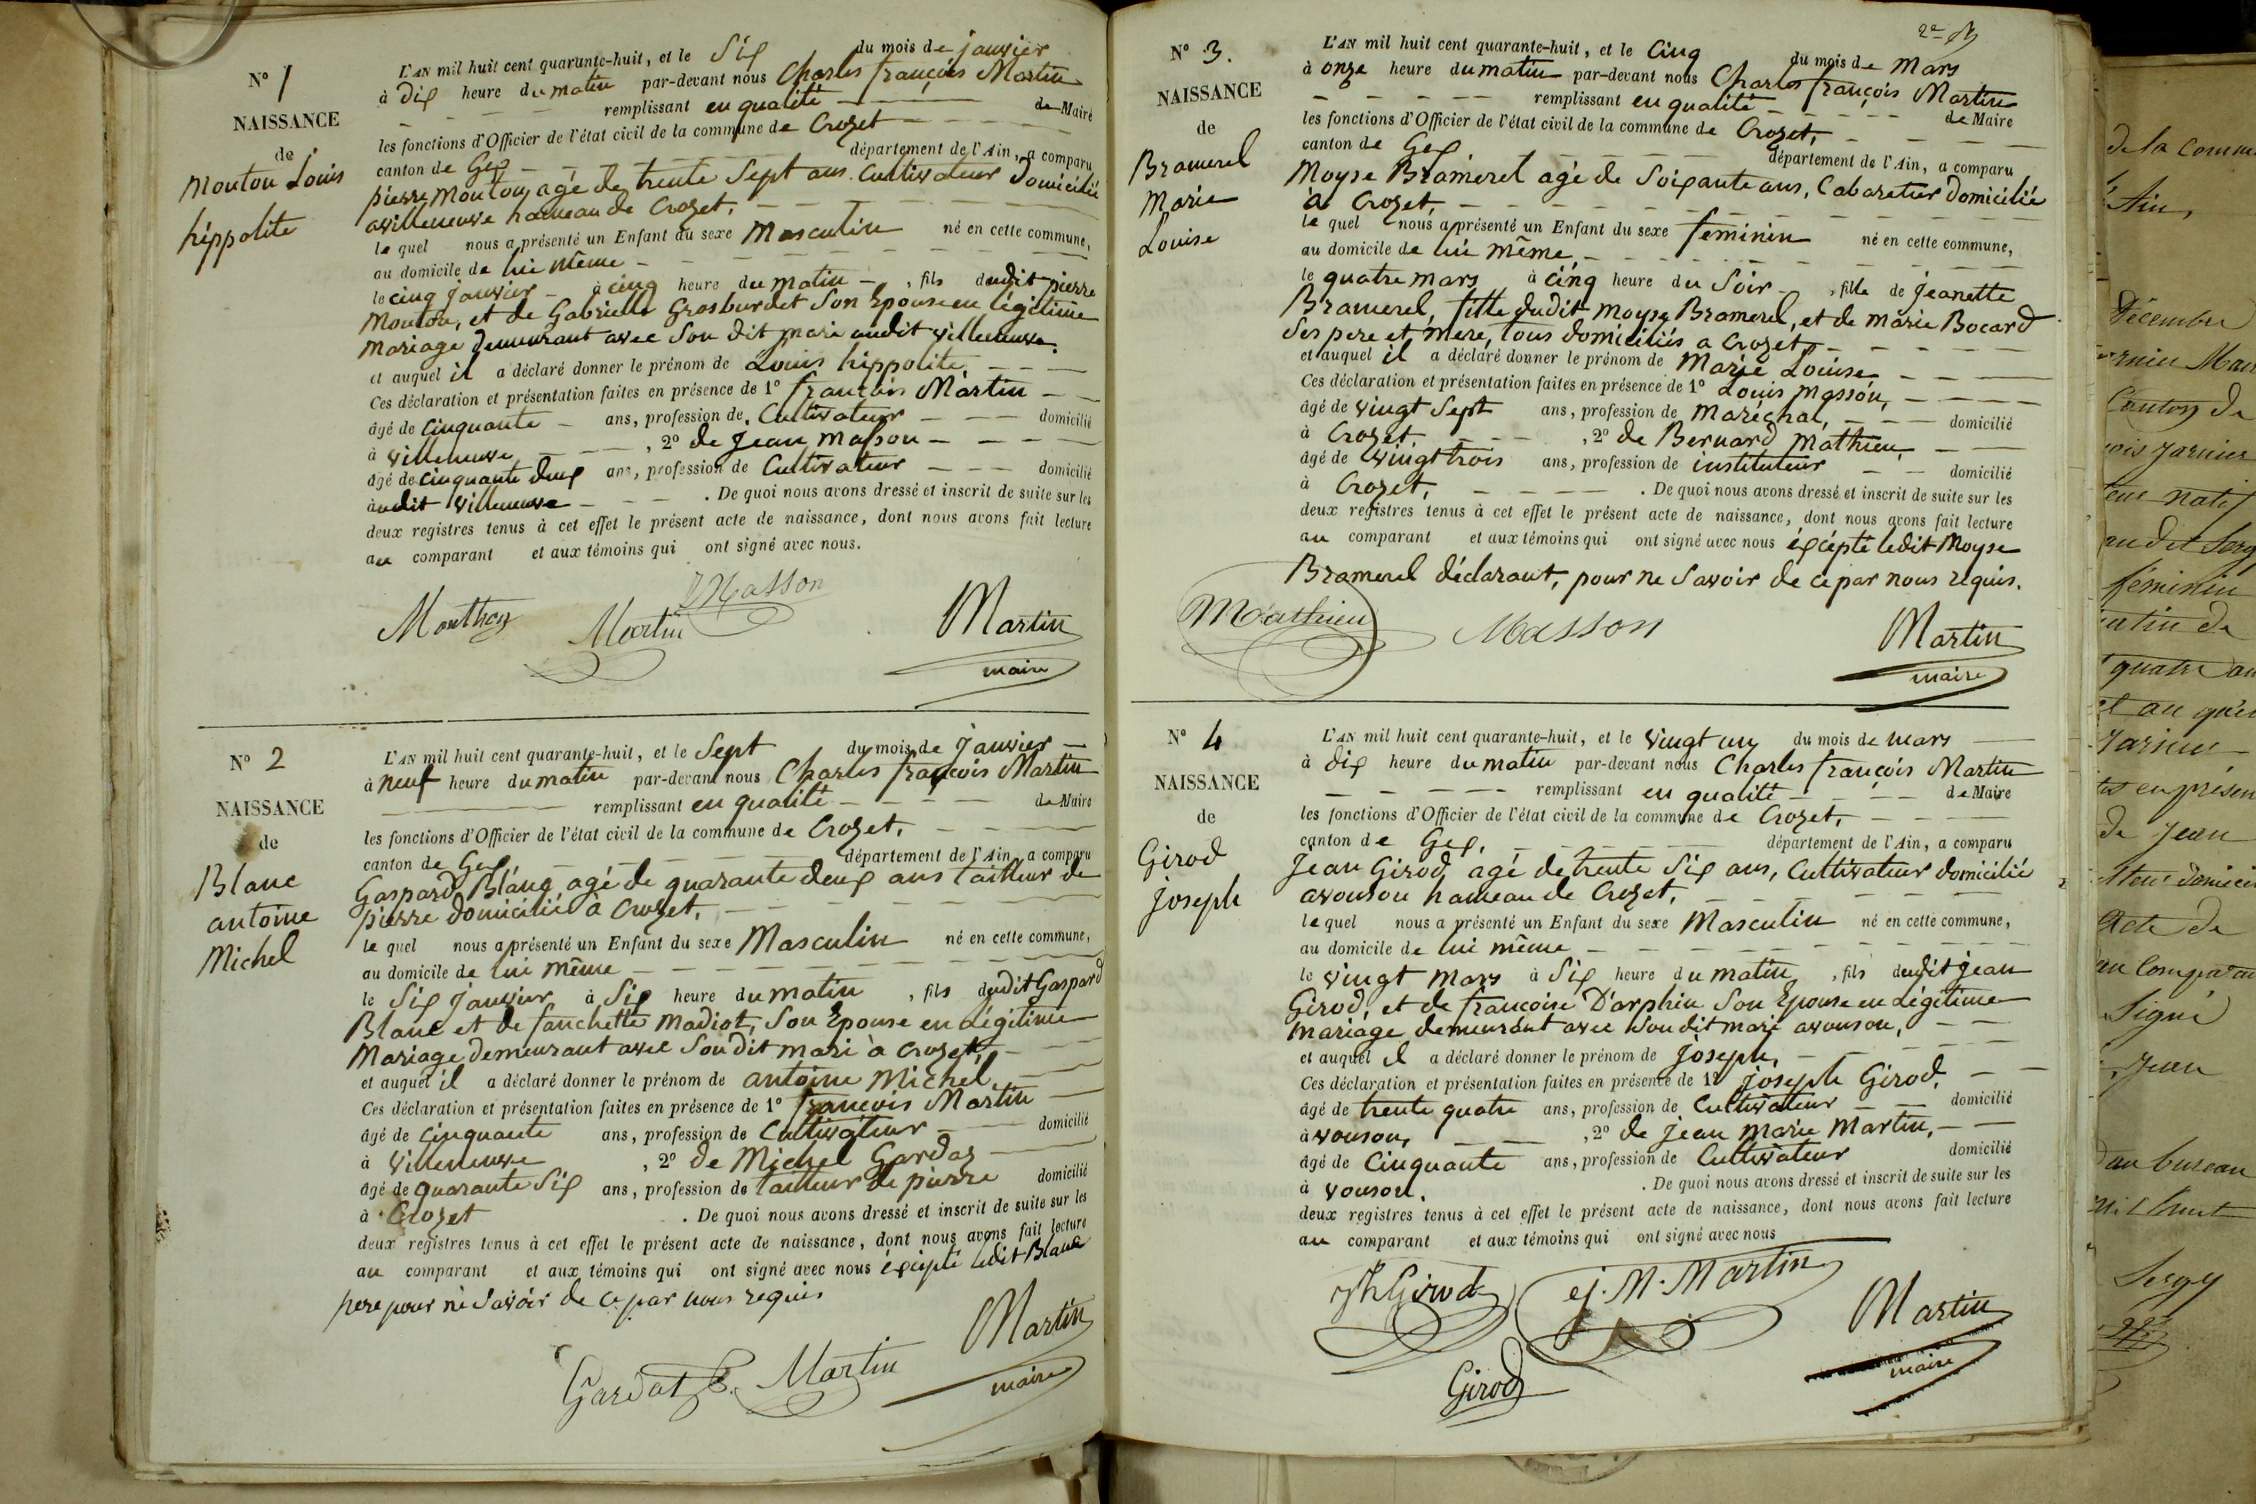 N° 1
NAISSANCE
de
Mouton Louis
hippolite
L'AN mil huit cent quarante-huit, et le Six du mois de janvier
à dix heure du matin par-devant nous Charles françois Martin
remplissant en qualité de Maire
les fonctions d'Officier de l'état civil de la commune de Crozet
canton de Gex département de l'Ain, a comparu
pierre Mouton, agé de trente Sept ans Cultivateur Domicilié
avilleneuve hameau de Crozet,
le quel nous a présenté un Enfant du sexe Masculin né en cette commune,
au domicile de lui même
le cinq janvier à cinq heure du matin, fils dudit pierre
Mouton, et de Gabrielle Grosburdet Son Epouse en légitime
Mariage demeurant avec Son dit mari audit villeneuve.
et auquel il a déclaré donner le prénom de Louis hippolite,
Ces déclaration et présentation faites en présence de 1° francois Martin
âgé de cinquante ans, profession de Cultivateur domicilié
à villeneuve, 2° de Jean Masson
âgé de cinquante deux ans, profession de Cultivateur domicilié
audit villeneuve. De quoi nous avons dressé et inscrit de suite sur les
deux registres tenus à cet effet le présent acte de naissance, dont nous avons fait lecture
au comparant et aux témoins qui ont signé avec nous.
Masson
Mouthon Martin Martin
maire
N° 2
NAISSANCE
de
Blanc
antoine
Michel
L'AN mil huit cent quarante-huit, et le Sept du mois de janvier
à neuf heure du matin par-devant nous Charles françois Martin
remplissant en qualité de Maire
les fonctions d'Officier de l'état civil de la commune de Crozet,
canton de Gex, département de l'Ain, a comparu
Gaspard Blanc, agé de quarante deux ans tailleur de
pierre domicilié à Crozet,
le quel nous a présenté un Enfant du sexe Masculin né en cette commune,
au domicile de lui même
le Six janvier à Six heure du matin, fils dudit Gaspard
Blanc et de fanchette Madiot, Son Epouse en Légitime
Mariage demeurant avec Son dit mari à Crozet,
et auquel il a déclaré donner le prénom de antoine Michel,
Ces déclaration et présentation faites en présence de 1° françois Martin
âgé de cinquante ans, profession de Cultivateur domicilié
à villeneuve, 2° de Michel Gardaz
âgé de quarante Six ans, profession de tailleur de pierre domicilié
à Crozet. De quoi nous avons dressé et inscrit de suite sur les
deux registres tenus à cet effet le présent acte de naissance, dont nous avons fait lecture
au comparant et aux témoins qui ont signé avec nous éxcépté ledit Blanc
pere pour ne Savoir de ce par nous requis
Martin
Gardat Martin maire
2e
N° 3.
NAISSANCE
de
Bramerel
Marie
Louise
L'AN mil huit cent quarante-huit, et le Cinq du mois de Mars
à onze heure du matin par-devant nous Charles françois Martin
remplissant en qualité de Maire
les fonctions d'Officier de l'état civil de la commune de Crozet,
canton de Gex département de l'Ain, a comparu
Moyse Bramerel agé de Soixante ans, Cabaretier domicilié
à Crozet,
le quel nous a présenté un Enfant du sexe féminin né en cette commune,
au domicile de lui même,
le quatre mars à cinq heure du Soir, fille de jeanette
Bramerel, fille dudit Moyse Bramerel, et de Marie Bocard
Ses pere et mere, tous domiciliés a Crozet,
et auquel il a déclaré donner le prénom de Marie Louise
Ces déclaration et présentation faites en présence de 1° Louis Masson,
âgé de vingt Sept ans, profession de Maréchal, domicilié
à Crozet, 2° de Bernard Mathieu,
âgé de vingt trois ans, profession de instituteur domicilié
à Crozet,. De quoi nous avons dressé et inscrit de suite sur les
deux registres tenus à cet effet le présent acte de naissance, dont nous avons fait lecture
au comparant et aux témoins qui ont signé avec nous éxcépté ledit Moyse
Bramerel déclarant, pour ne Savoir de ce par nous requis.
Mathieu Masson Martin
maire
N° 4
NAISSANCE
de
Girod
joseph
L'AN mil huit cent quarante-huit, et le vingt un du mois de mars
à dix heure du matin par-devant nous Charles françois Martin
remplissant en qualité de Maire
les fonctions d'Officier de l'état civil de la commune de Crozet,
canton de Gex, département de l'Ain, a comparu
Jean Girod, agé de trente Six ans, Cultivateur domicilié
avouson hameau de Crozet,
le quel nous a présenté un Enfant du sexe Masculin né en cette commune,
au domicile de lui même
le vingt Mars à Six heure du matin, fils dudit jean
Girod, et de francoise Darphin Son Epouse en Légitime
Mariage demeurant avec Son dit mari avouson,
et auquel il a déclaré donner le prénom de joseph,
Ces déclaration et présentation faites en présence de 1° joseph Girod,
âgé de trente quatre ans, profession de Cultivateur domicilié
à vouson, 2° de jean Marie Martin,
âgé de Cinquante ans, profession de Cultivateur domicilié
à vouson.. De quoi nous avons dressé et inscrit de suite sur les
deux registres tenus à cet effet le présent acte de naissance, dont nous avons fait lecture
au comparant et aux témoins qui ont signé avec nous
Jh Girod J. M. Martin Martin
maire
Girod
de la comm
Ain,
Décembre
Canton de
natif
féminin
quatre
de Jean
Acte de
Signé
Jean
bureau
Sergy